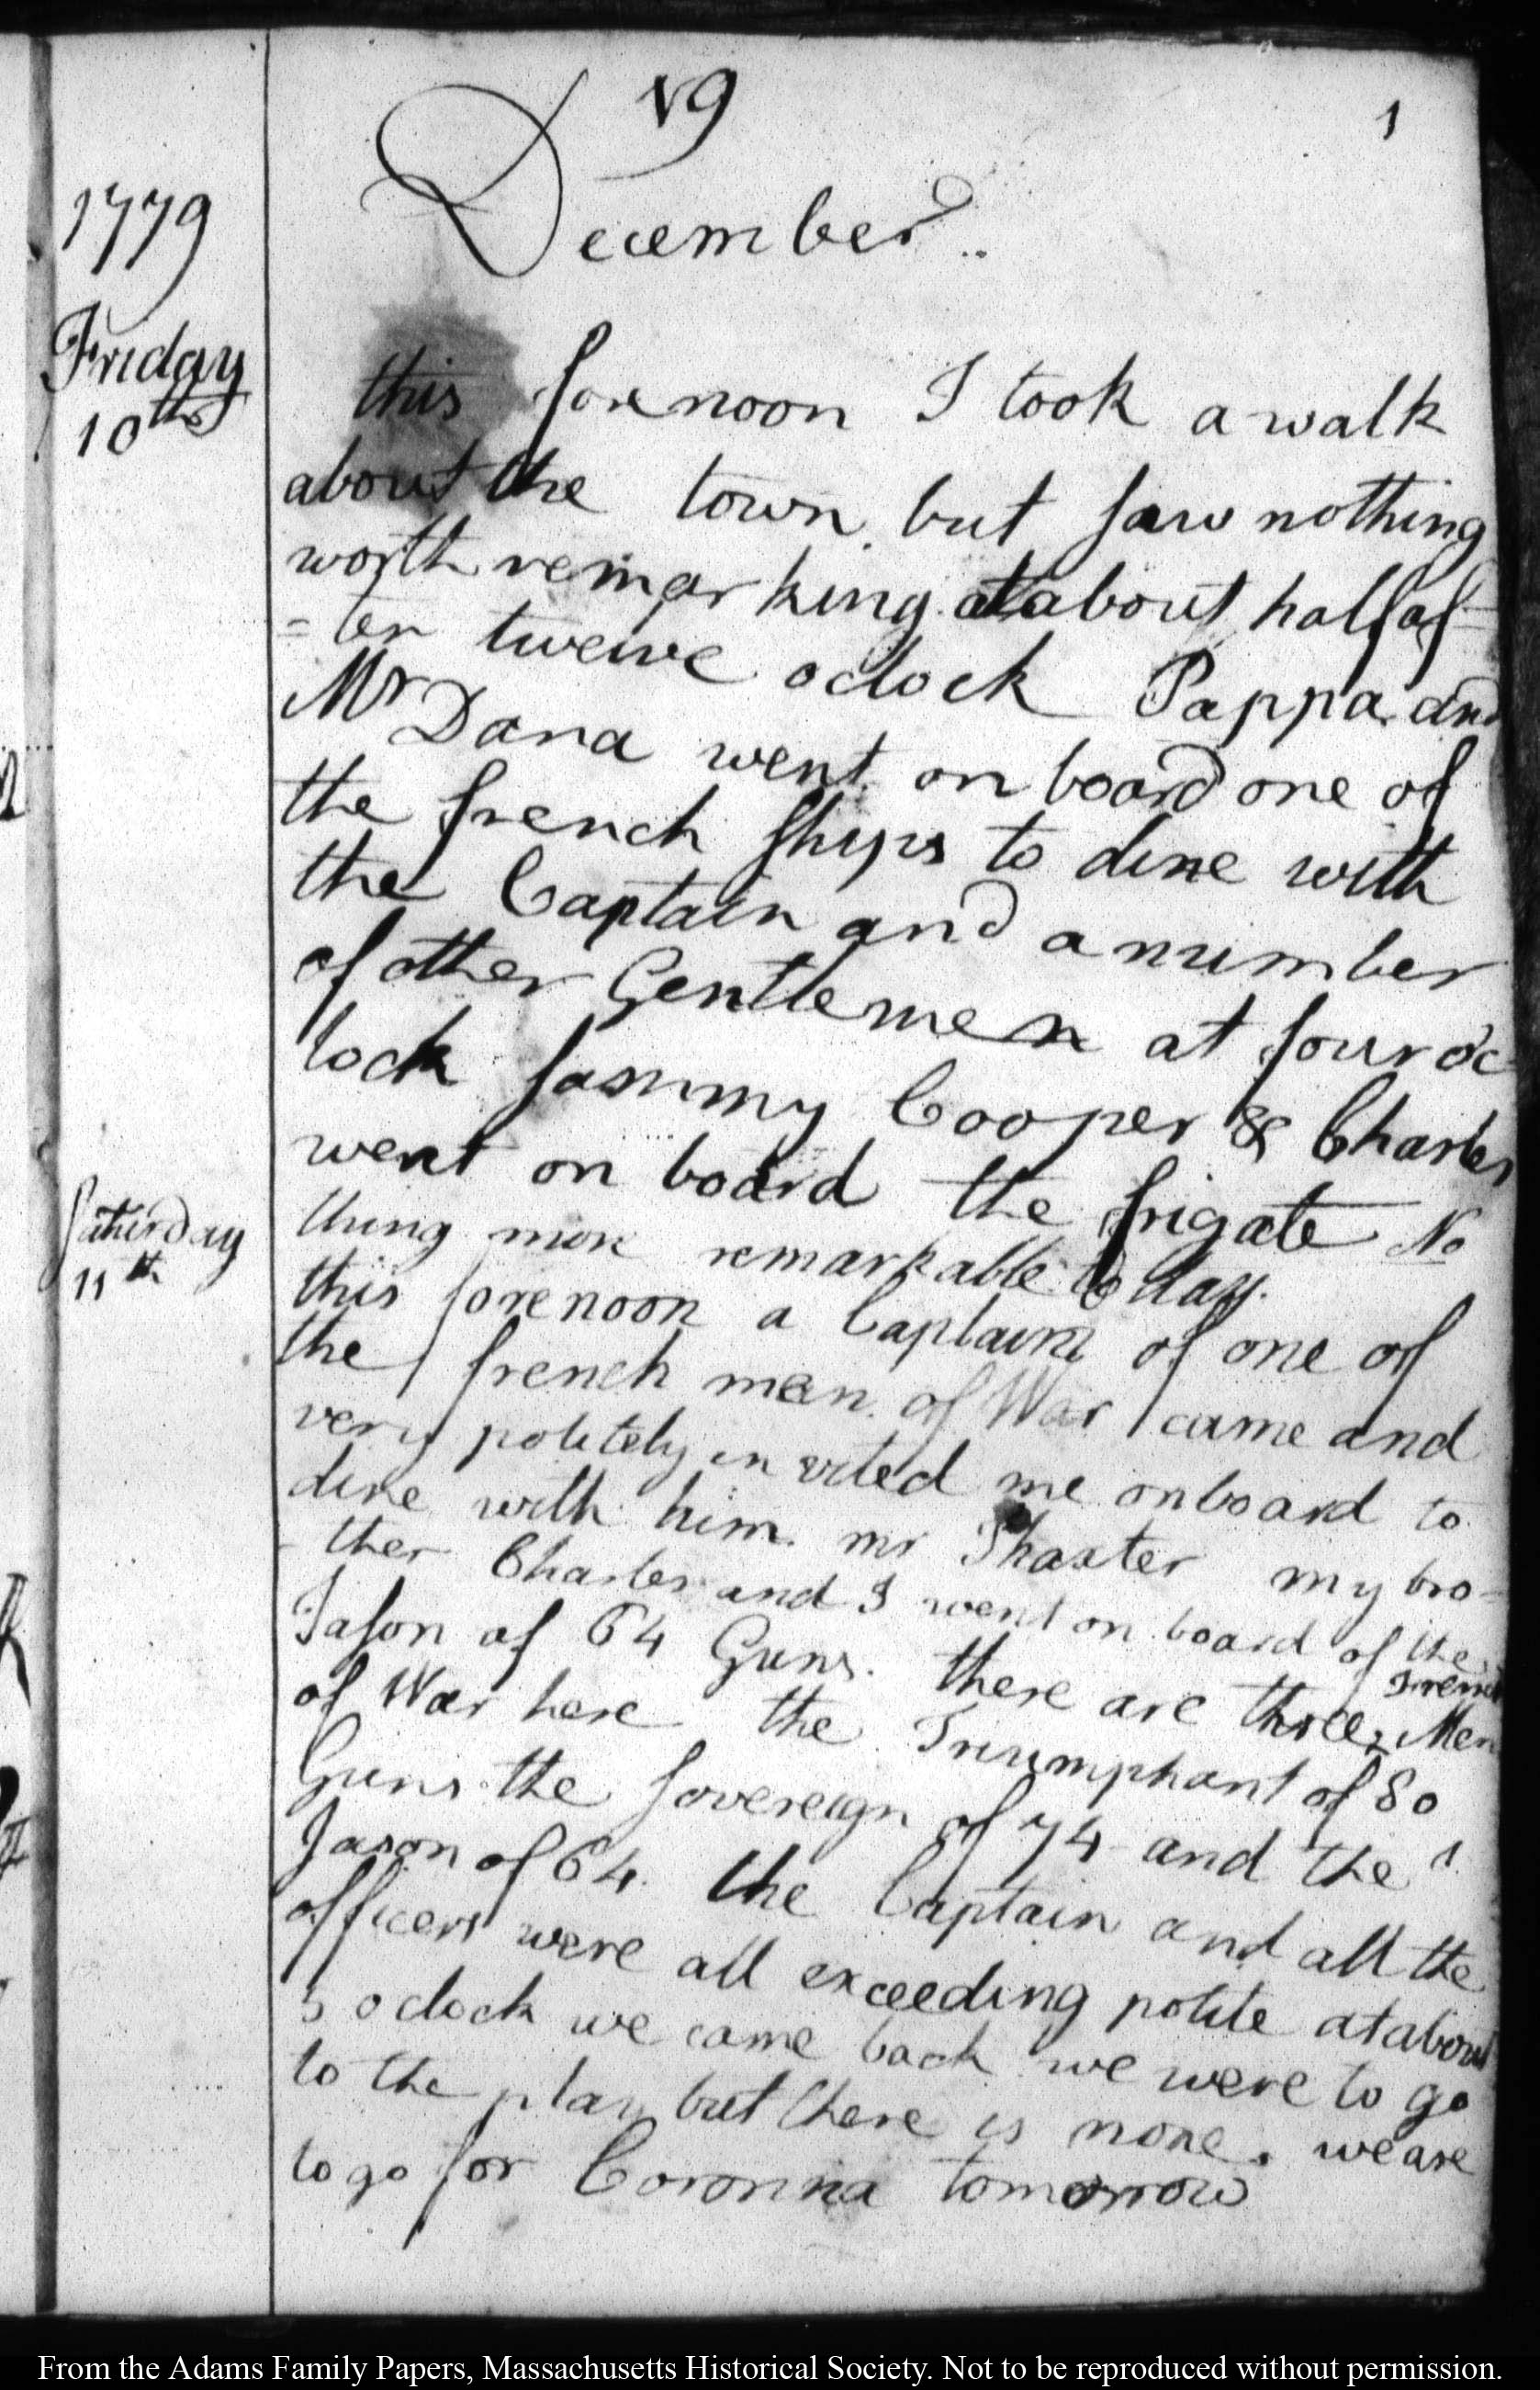 19
1
December..
1779
Friday
10th
this forenoon I took a walk
about the town but saw nothing
worth remarking. at about half af-
=ter twelve oclock Pappa and
Mr Dana went on board one of
the french ships to dine with
the Captain and a number
of other Gentlemen at four o'c
lock Sammy Cooper & Charles
went on board the frigate No
thing more remarkable to day.
Saturday
11th
this forenoon a Captain of one of
the french men of War came and
very politely invited me on board to
dine with him. mr Thaxter my bro-
-ther Charles and I went on board of the
Jason of 64 Guns. there are three french Men
of War here the Triumphant of 80
Guns the Sovereign of 74 and the
Jason of 64. the Captain and all the
officers were all exceeding polite at about
5 oclock we came back we were to go
to the play but there is none. we are
to go for Coronna tomorrow
From the Adams Family Papers, Massachusetts Historical Society. Not to be reproduced without permission.